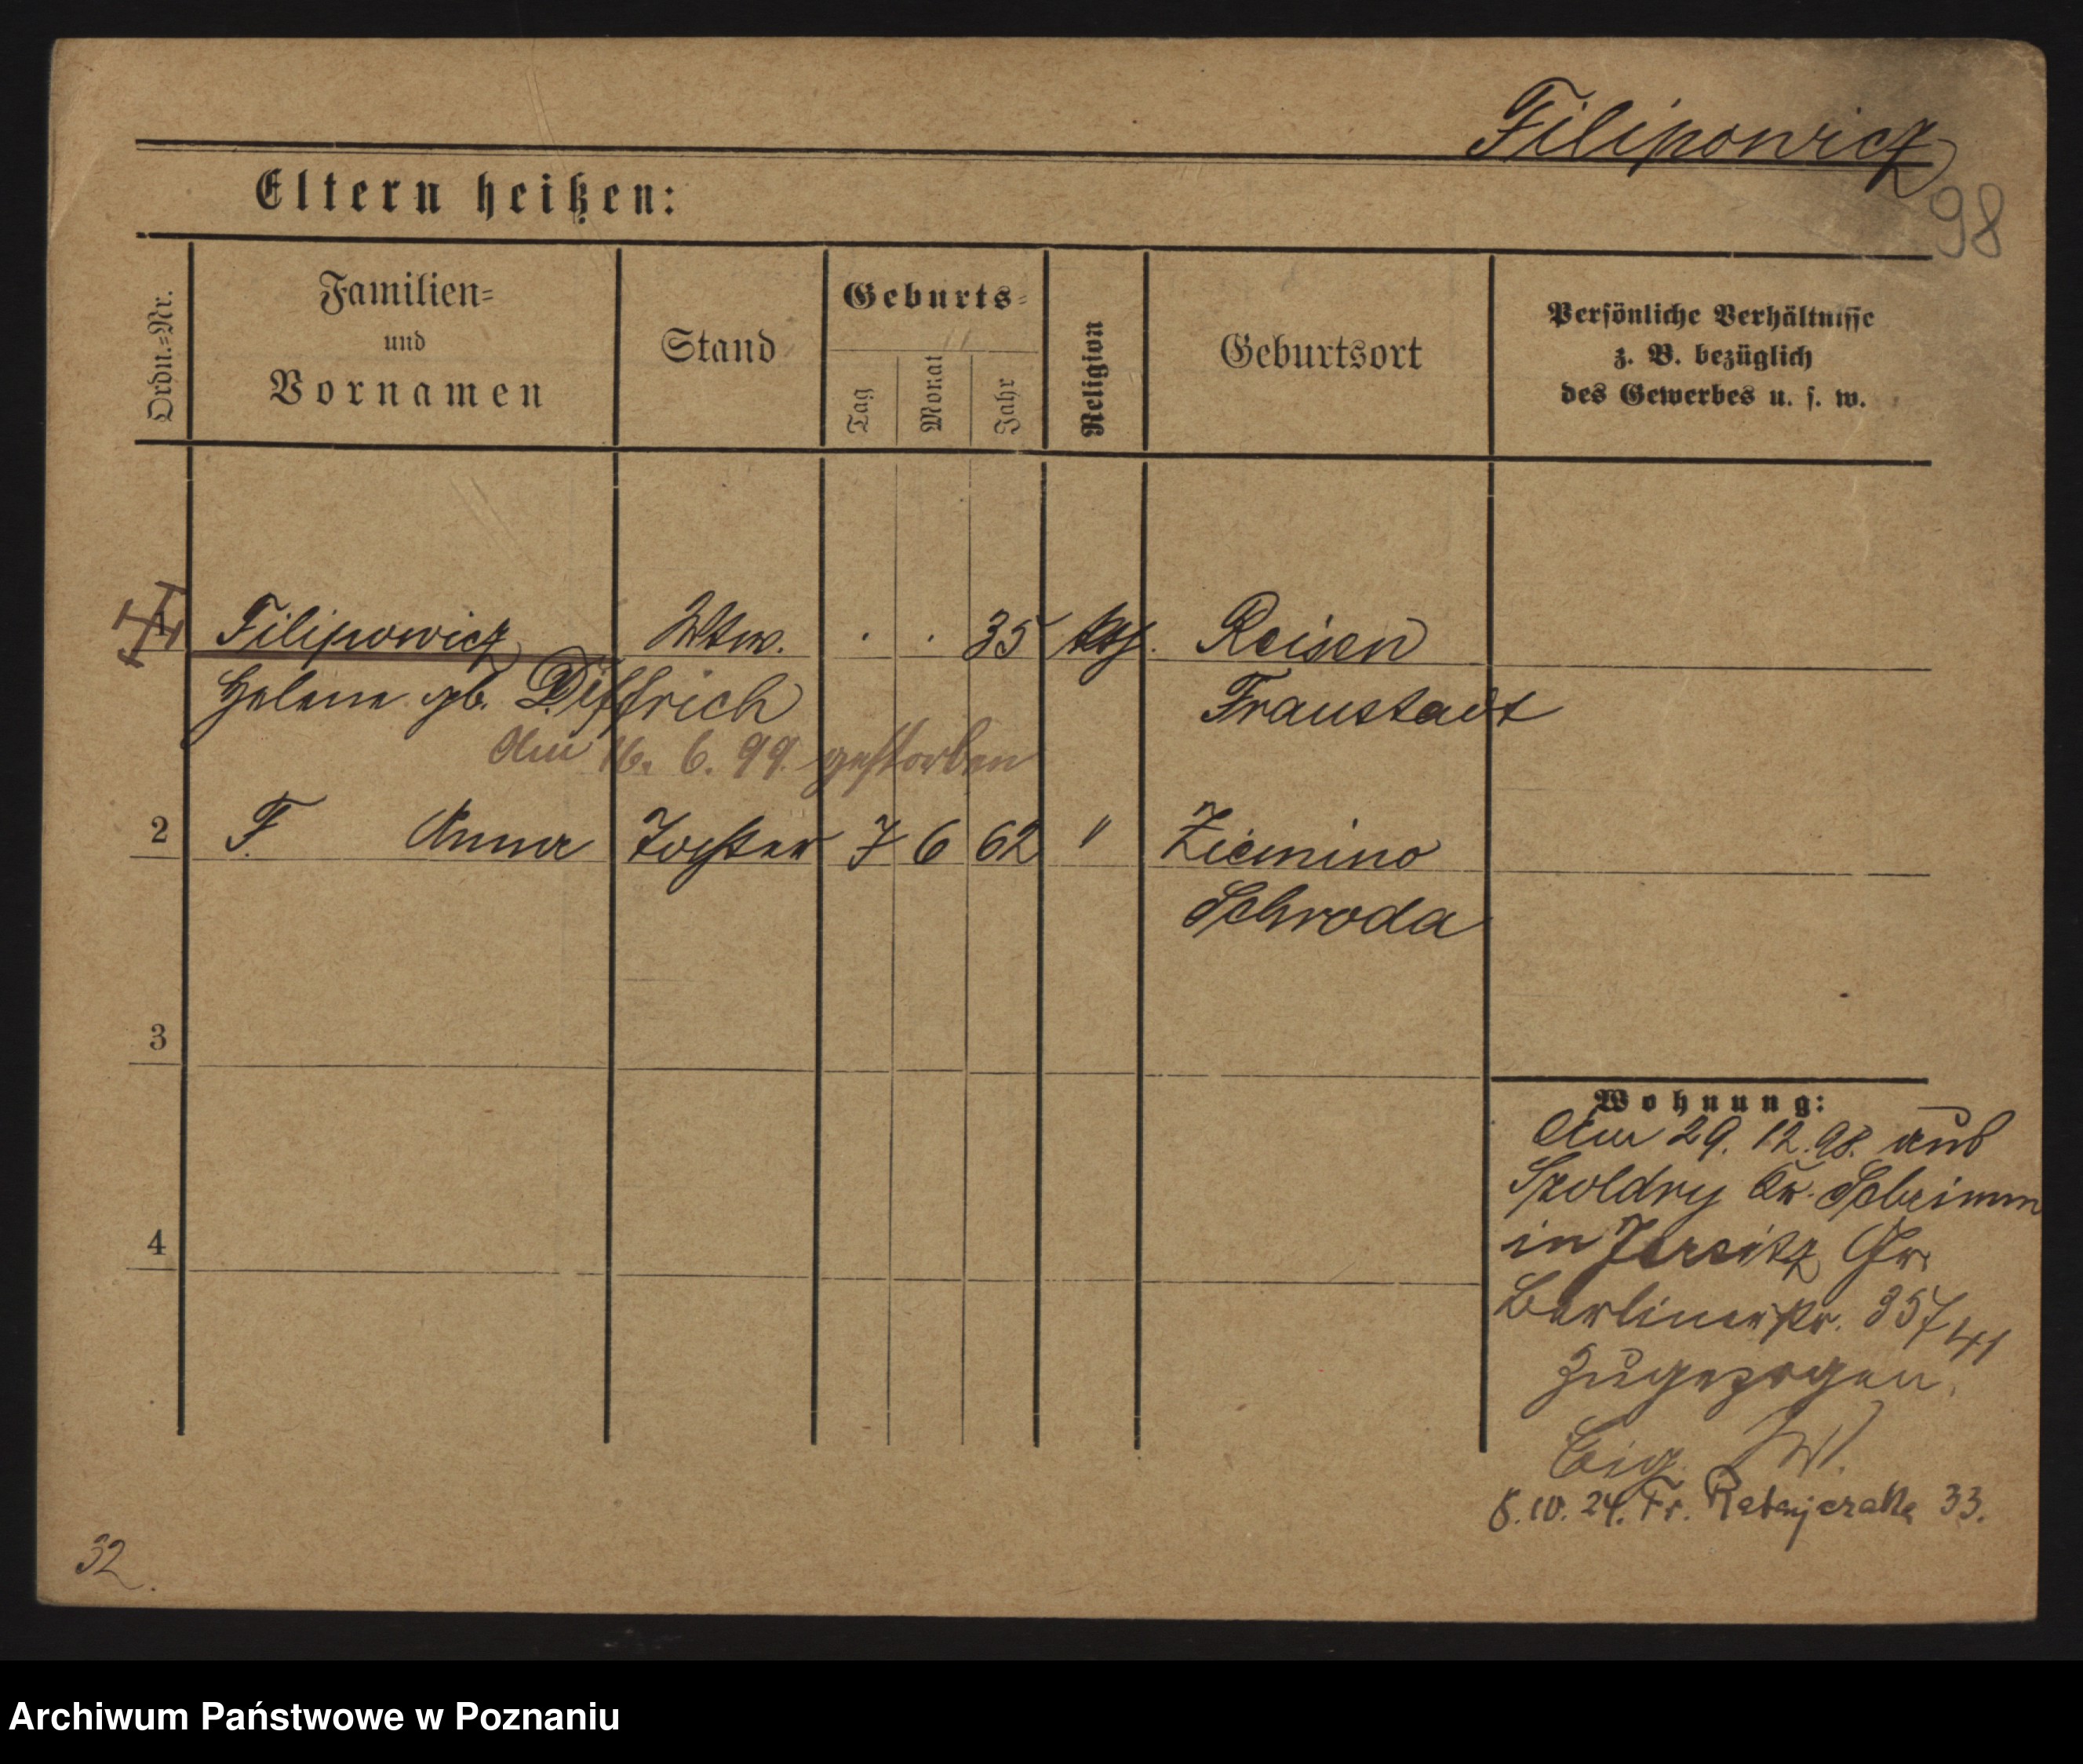 Filipowicz
98
Eltern heißen:
Ordn.=Nr.
Familien=
und
Vornamen
Stand
Geburts=
Tag
Monat
Jahr
Religion
Geburtsort
Persönliche Verhältnisse
z. B. bezüglich
des Gewerbes u. s. w.
1 Filipowicz Wtw. . . 35 Reisen
Helene gb. Diffrich Fraustadt
Am 16. 6. 99. gestorben
2 F. Anna Tochter 7 6 62 " Ziemino
Schroda
3
4
Wohnung:
Am 29. 12. 98. aus
Szoldry Kr. Schrimm
in Jersitz Gr.
Berlinerstr. 35/41
zugezogen.
Eig. W.
8.10.24. Fr. Ratajczaka 33.
32.
Archiwum Państwowe w Poznaniu